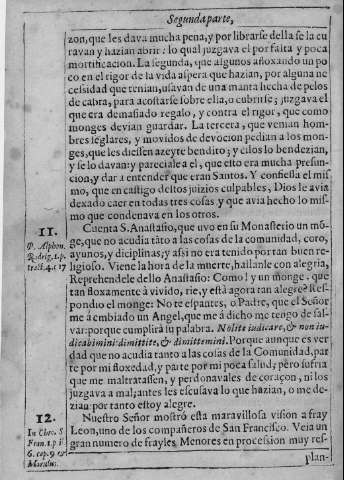 Segunda parte,
zon, que les dava mucha pena, y por librarse della se la cu
ravan y hazian abrir: lo qual juzgava el por falta y poca
mortificacion. La segunda, que algunos añoxando un po
co en el rigor de la vida aspera que hazian, por alguna ne
cessidad que tenian, usavan de una manta hecha de pelos
de cabra, para acostarse sobre ella, o cubrirse; juzgava el
que era demasiado regalo, y contra el rigor, que como
monges devian guardar. La tercera, que venian hom-
bres seglares, y movidos de devocion pedian a los mon-
ges, que les diessen azeyte bendito; y ellos lo bendezian,
y se lo davan: y pareciale a el, que esto era mucha presun-
cion, y dar a entender que eran Santos. Y confiessa el mis
mo, que en castigo destos juizios culpables, Dios le avia
dexado caer en todas tres cosas y que avia hecho lo mis-
mo que condenava en los otros.
11.
Cuenta S. Anastasio, que uvo en su Monasterio un mō-
P. Alphon.
ge, que no acudia tāto a las cosas de la comunidad, coro,
Rodrig. 1. p.
ayunos, y diciplinas; y assi no era tenido por tan buen re-
tract. 4. c. 17
ligioso. Viene la hora de la muerte, hallanle con alegria,
Reprehendele dello Anastasio: Como! y un monge. que
tan floxamente à vivido, rie, y està agora tan alegre? Res-
pondio el monge: No te espantes, o Padre, que el Señor
me à embiado un Angel, que me à dicho me tengo de sal-
var: porque cumplirà su palabra. Nolite iudicare, & non iu-
dicabimini: dimittite, & dimittemini. Porque aunque es ver
dad que no acudia tanto a las cosas de la Comunidad, par
te por mi floxedad, y parte por mi poca salud; pero sufria
que me maltratassen, y perdonavales de coraçon, ni los
juzgava a mal; antes les escusava lo que hazian, o me de-
zian por tanto estoy alegre.
12.
Nuestro Señor mostrò esta maravillosa vision a fray
In Chro. S.
Leon, uno de los compañeros de San Francisco. Veia un
Fran. 1. p. li.
gran numero de frayles, Menores en procession muy res-
6. cap. 9
plan-